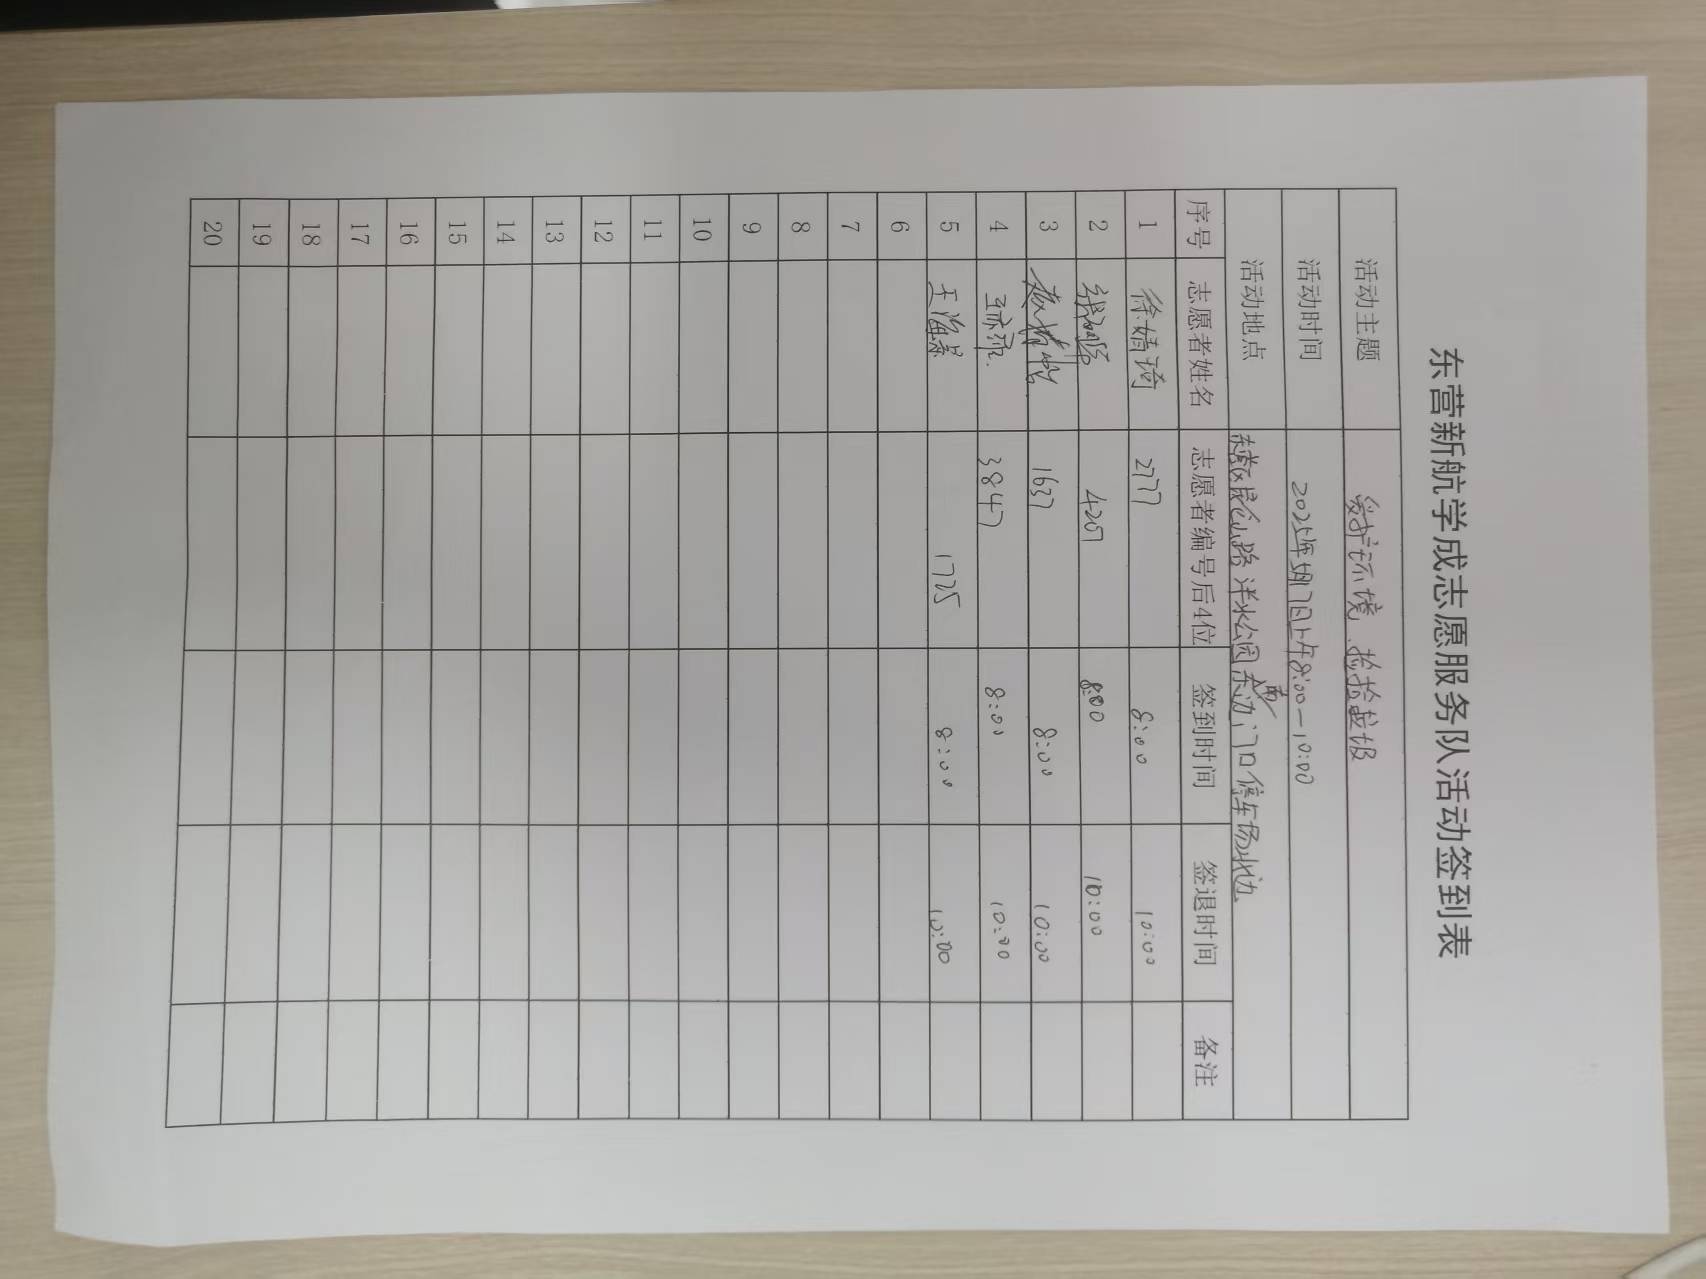 东营新航学成志愿服务队活动签到表
活动主题 爱护环境,捡拾垃圾
活动时间 2025年5月7日上午8:00—10:00
活动地点 东营区昆仑山路洋水公园东边门口停车场北边
序号 志愿者姓名 志愿者编号后4位 签到时间 签退时间 备注
1 徐婧琦 2777 8:00 10:00
2 4207 8:00 10:00
3 1637 8:00 10:00
4 3847 8:00 10:00
5 王海 1725 8:00 10:00
6
7
8
9
10
11
12
13
14
15
16
17
18
19
20